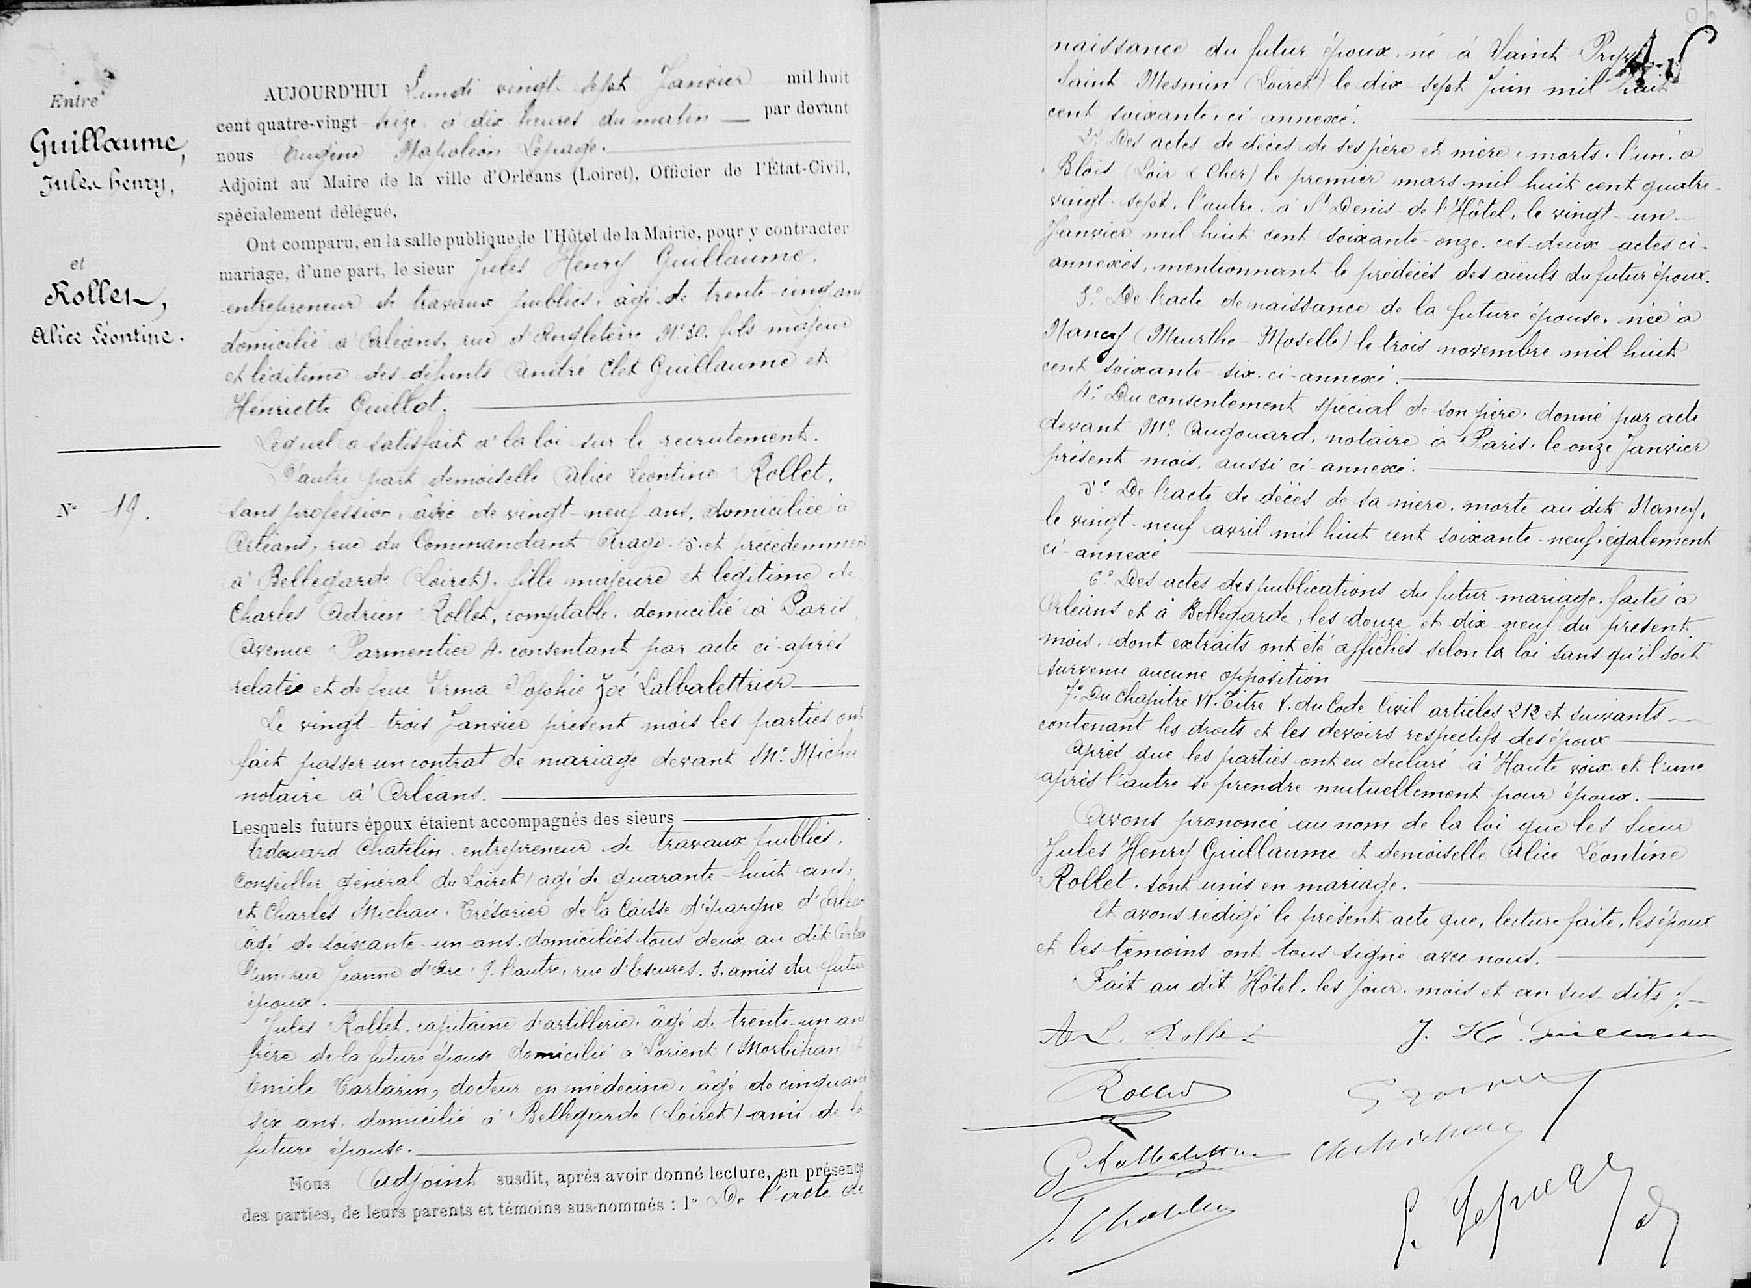 Entre
Guillaume,
Jules henry,
et
Rollet,
Alice Léontine.
N° 19.
AUJOURD'HUI Lundi vingt-sept Janvier mil huit
cent quatre-vingt-seize à dix heures du matin par devant
nous Eugène Napoléon Lepage.
Adjoint au Maire de la ville d'Orléans (Loiret), Officier de l'Etat-Civil,
spécialement délégué,
Ont comparu, en la salle publique de l'Hôtel de la Mairie, pour y contracter
mariage, d'une part, le sieur Jules Henry Guillaume.
entrepreneur de travaux publics, âgé de trente-cinq ans
domicilié à Orléans, rue d'Angleterre N° 30. fils majeur
et légitime des défunts André Clet Guillaume et
Henriette Guillot.
Lequel a satisfait à la loi sur le recrutement.
D'autre part demoiselle Alice Léontine Rollet,
sans profession, âgée de vingt-neuf ans, domiciliée à
Orléans, rue du Commandant Arago. 5. et précédemment
à Bellegarde (Loiret), fille majeure et légitime de
Charles Adrien Rollet, comptable, domicilié à Paris,
Avenue Parmentier 4. consentant par acte ci-après
relaté et de feue Irma Sophie Zoé Lalbalettrier
Le vingt-trois Janvier présent mois les parties ont
fait passer un contrat de mariage devant Me Michu
notaire à Orléans.
Lesquels futurs époux étaient accompagnés des sieurs
Edouard Chatelin, entrepreneur de travaux publics,
Conseiller général du Loiret, âgé de quarante-huit ans,
et Charles Michau, Trésorier de la Caisse d'épargne d'Orléans
âgé de soixante-un ans, domiciliés tous deux au dit Orléans
l'un, rue Jeanne d'Arc 9. l'autre, rue d'Escures. 3. amis du futur
époux.
Jules Rollet, capitaine d'artillerie, âgé de trente-un ans
frère de la future épouse domicilié à Lorient (Morbihan) et
Emile Tartarin, docteur en médecine, âgé de cinquante
six ans, domicilié à Bellegarde (Loiret) ami de la
future épouse.
Nous Adjoint susdit, après avoir donné lecture, en présence
des parties, de leurs parents et témoins sus-nommés : 1° De l'acte de
naissance du futur époux, né à Saint Pryvé
Saint Mesmin (Loiret) le dix sept Juin mil huit
cent soixante, ci annexé.
2° Des actes de décès de ses père et mère, morts, l'un, à
Blois (Loir & Cher) le premier mars mil huit cent quatre-
vingt-sept, l'autre, à St Denis de l'Hôtel, le vingt-un
Janvier mil huit cent soixante-onze. ces deux actes ci-
annexés, mentionnant le prédécès des aïeuls du futur époux.
3° De l'acte de naissance de la future épouse, née à
Nancy (Meurthe-Moselle) le trois novembre mil huit
cent soixante-six. ci-annexé.
4° Du consentement spécial de son père, donné par acte
devant Me Augouard, notaire à Paris, le onze Janvier
présent mois, aussi ci-annexé.
5° De l'acte de décès de sa mère, morte au dit Nancy,
le vingt-neuf avril mil huit cent soixante-neuf, également
ci-annexé
6° Des actes des publications du futur mariage, faites à
Orléans et à Bellegarde, les douze et dix-neuf du présent
mois, dont extraits ont été affichés selon la loi sans qu'il soit
survenu aucune opposition
7° Du Chapitre VI. Titre V. du Code Civil articles 212 et suivants
contenant les droits et les devoirs respectifs des époux
Après que les parties ont eu déclaré à Haute voix et l'une
après l'autre se prendre mutuellement pour époux.
Avons prononcé au nom de la loi que les Sieur
Jules Henry Guillaume et demoiselle Alice Léontine
Rollet, sont unis en mariage.
Et avons rédigé le présent acte que, lecture faite, les époux
et les témoins ont tous signé avec nous.
Fait au dit Hôtel, les jour, mois et an sus dits ;
A L. Rollet J. H. Guillaume
Rollet
Ch Michau
E. Chatelin
E. Lepage